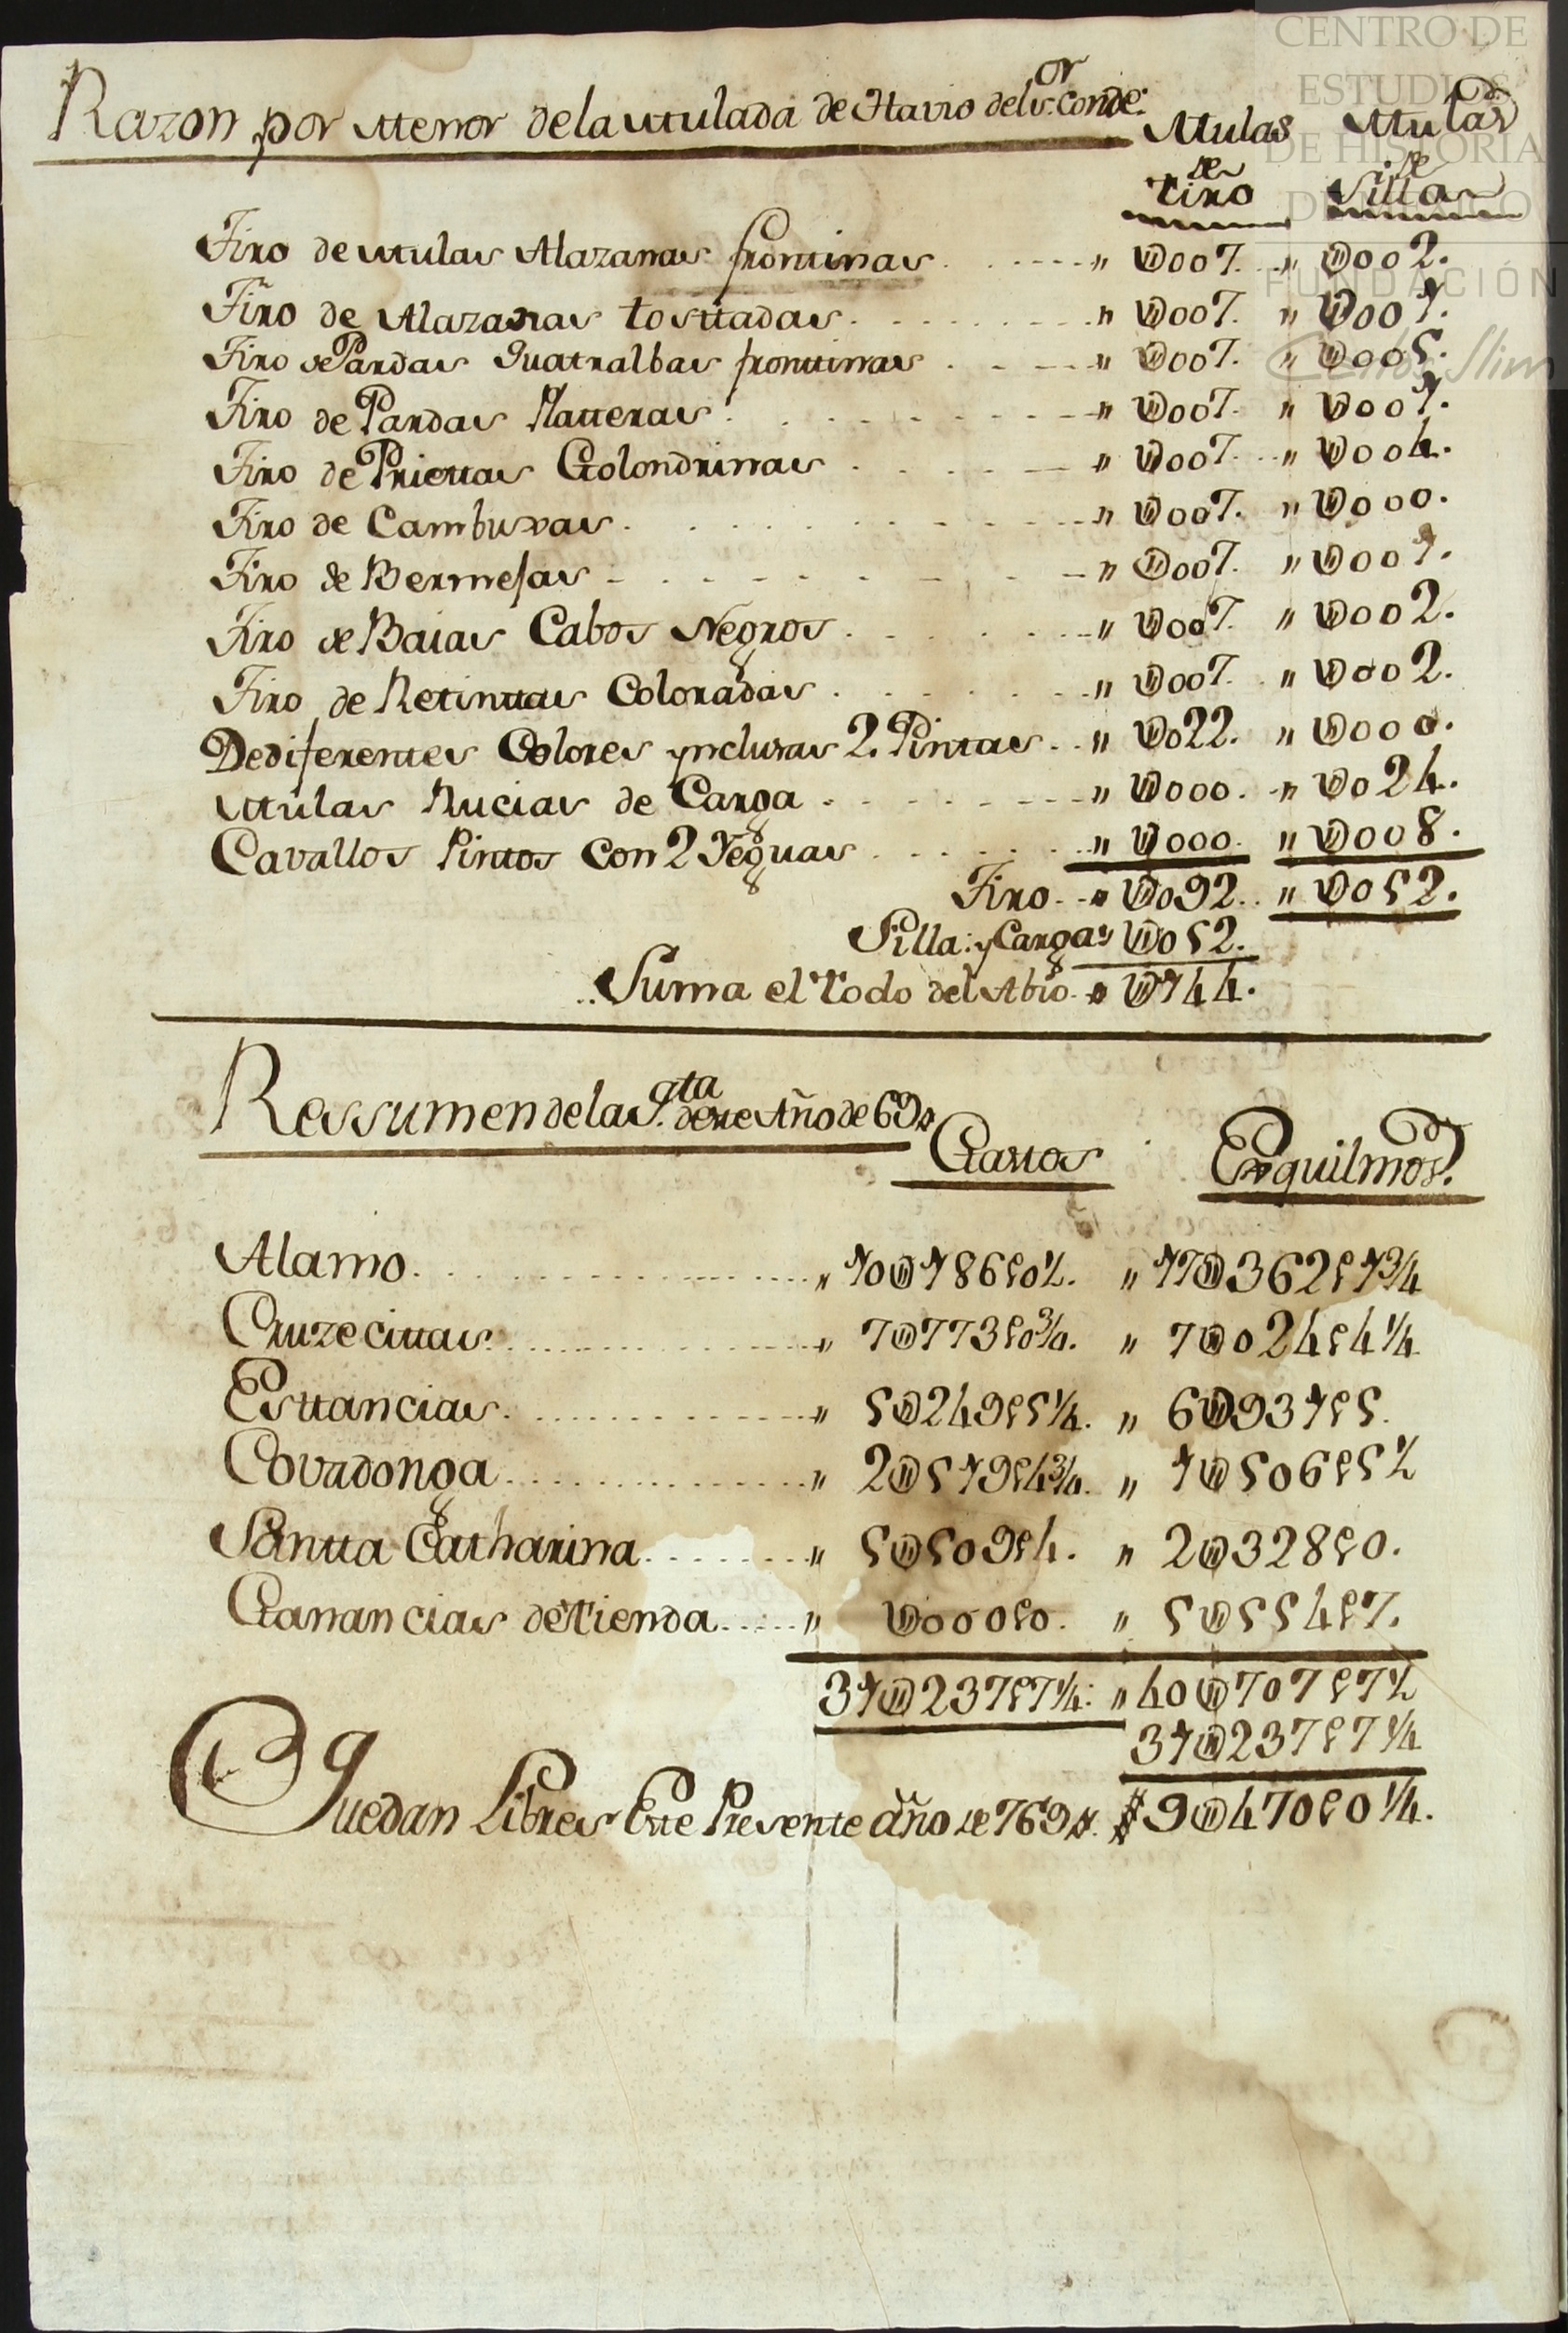 Razon por Menor de la Mulada de Havio del Sor. Conde. Mulas de tiro Mulas de Silla
Tiro de Mulas Alazanas frontinas " U007. " U002.
Tiro de Alazanas tosttadas " U007. " U001.
Tiro de Pardas Quatralbas fronttinas " U007. " U005.
Tiro de Pardas Platteras " U007. " U001.
Tiro de Priettas Golondrinas " U007. " U004.
Tiro de Cambuxas " U007. " U000.
Tiro de Bermejas " U007. " U001.
Tiro de Baias Cabos Negros " U007. " U002.
Tiro de Retinttas Coloradas " U007. " U002.
De diferentes Colores ynclusas 2. Pintas " U022. " U000.
Mulas Rucias de Carga " U000. " U024.
Cavallos Pintos con 2 Yeguas " U000. " U008.
Tiro " U092. " U052.
Silla: y Carga " U052.
Suma el todo del Abio " U144.
Ressumen de la Qta. deste Año de 69 Gastos Esquilmos.
Alamo " 10U186p0½. " 17U362p1¾
Cruzecittas " 7U773p0¾. " 7U024p4¼
Esttancias " 5U249p5¼. " 6U931p5.
Covadonga " 2U519p4¾. " 1U506p5½
Santta Catharina " 5U509p4. " 2U328p0.
Ganancias de tienda " U000p0. " 5U554p7.
31U237p7¼. " 40U707p7½
31U237p7¼
Quedan Libres Este Presente año de 769 $ 9U470p0¼.
CENTRO DE
ESTUDIOS
DE HISTORIA
DE MÉXICO
FUNDACIÓN
Carlos Slim